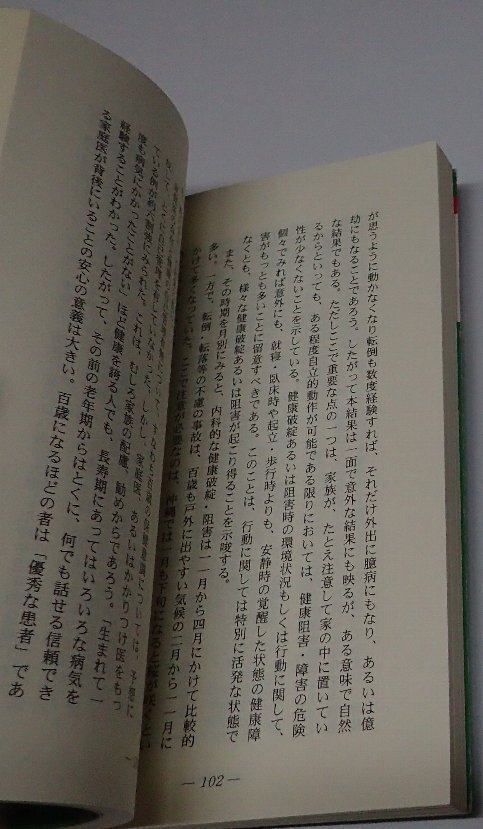 が思うように動かなくなり転倒も数度経験すれば、それだけ外出に臆病にもなり、あるいは億
劫にもなることであろう。したがって本結果は一面で意外な結果にも映るが、ある意味で自然
な結果でもある。ただしここで重要な点の一つは、家族が、たとえ注意して家の中に置いてい
るからといっても、ある程度自立的動作が可能である限りにおいては、健康阻害・障害の危険
性が少なくないことを示している。健康破綻あるいは阻害時の環境状況もしくは行動に関して、
個々でみれば意外にも、就寝・臥床時や起立・歩行時よりも、安静時の覚醒した状態の健康障
害がもっとも多いことに留意すべきである。このことは、行動に関しては特別に活発な状態で
なくとも、様々な健康破綻あるいは阻害が起こり得ることを示唆する。
また、その時期を月別にみると、内科的な健康破綻・阻害は一月から四月にかけて比較的
多い。一方で、転倒、転落等の不慮の事故は、百歳も戸外に出やすい気候の二月から一一月に
かけて多くなっていた。ここで注意が必要なのは、沖縄では一月も下旬になると
― 102 ―
ている例が約六割強にみられた。これは、むしろ家族の配慮、勧めからであろう。「生まれて一
度も病気にかかったことがない」ほど健康を誇る人でも、長寿期にあってはいろいろな病気を
経験することがわかった。したがって、その前の老年期からはとくに、何でも話せる信頼でき
る家庭医が背後にいることの安心の意義は大きい。百歳になるほどの者は「優秀な患者」であ